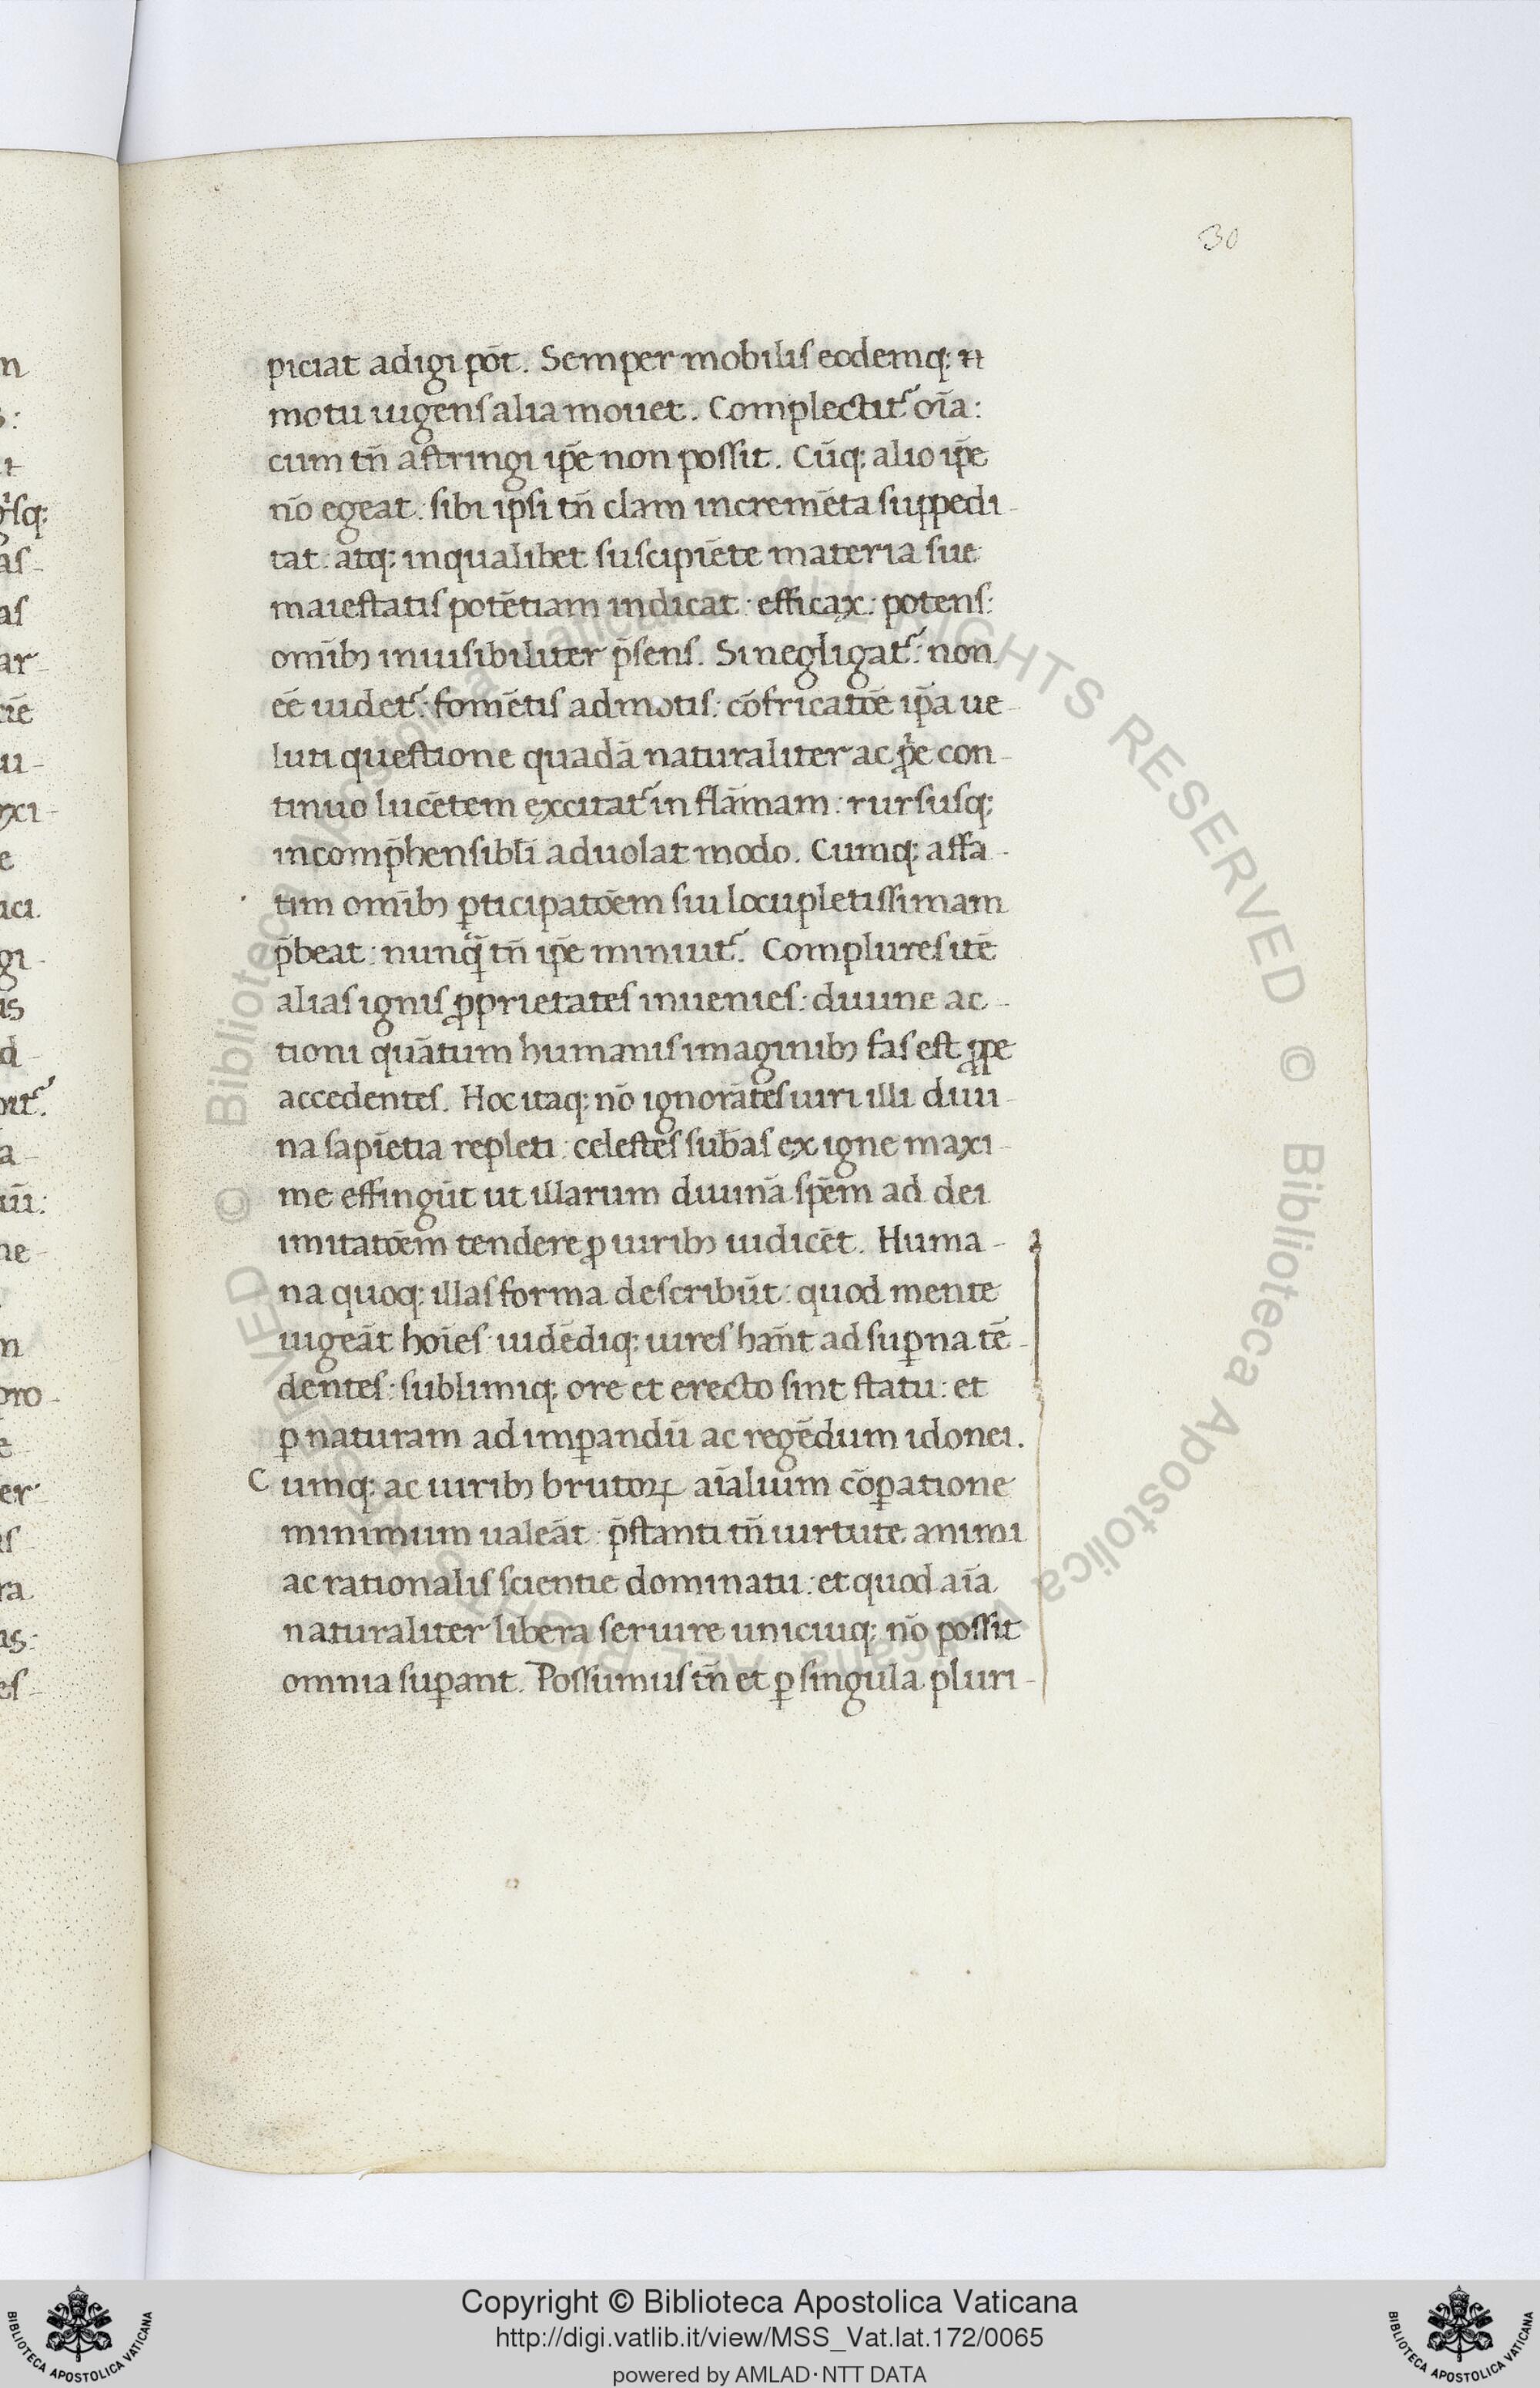 30
piciat adigi põt. Semper mobilis eodemq; et
motu uigens alia mouet. Complectit᷒ oĩa:
cum tñ astringi ip̃e non possit. Cũq; alio ip̃e
nõ egeat: sibi ipsi tñ clam incremẽta suppedi-
tat: atq; in qualibet suscipiẽte materia sue
maiestatis potẽtiam indicat: efficax: potens:
omĩbꝫ inuisibiliter p̃sens. Si negligat᷒: non
eẽ uidet᷒: fomẽtis admotis: cõfricatõe ip̃a ue-
luti questione quadã naturaliter ac ꝓpe con-
tinuo lucẽtem excitat᷒ in flãmam: rursusq;
incomp̃hensibľi aduolat modo. Cumq; affa-
tim omĩbꝫ ꝑticipatõem sui locupletissimam
p̃beat: nunq̃ tñ ip̃e minuit᷒. Complures itẽ
alias ignis ꝓprietates inuenies: diuine ac-
tioni quãtum humanis imaginibꝫ fas est ꝓpe
accedentes. Hoc itaq; nõ ignorãtes uiri illi diui-
na sapiẽtia repleti: celestes sub̃as ex igne maxi-
me effingũt ut illarum diuinã spẽm ad dei
imitatõem tendere ꝓ uiribꝫ iudicẽt. Huma-
na quoq; illas forma describũt: quod mente
uigeãt hoĩes uidẽdiq; uires hañt ad suꝑna tẽ-
dentes: sublimiq; ore et erecto sint statu: et
ꝑ naturam ad imꝑandũ ac regẽdum idonei.
Cumq; ac uiribꝫ brutoꝝ aĩalium cõꝑatione
minimum ualeãt: p̃stanti tñ uirtute animi
ac rationalis scientie dominatu: et quod aĩa
naturaliter libera seruire unicuiq; nõ possit
omnia suꝑant. Possumus tñ et ꝑ singula pluri-
© Biblioteca Apostolica Vaticana. ALL RIGHTS RESERVED © Biblioteca Apostolica Vaticana. ALL RIGHTS RESERVED
Copyright © Biblioteca Apostolica Vaticana
http://digi.vatlib.it/view/MSS_Vat.lat.172/0065
powered by AMLAD·NTT DATA
BIBLIOTECA APOSTOLICA VATICANA
BIBLIOTECA APOSTOLICA VATICANA